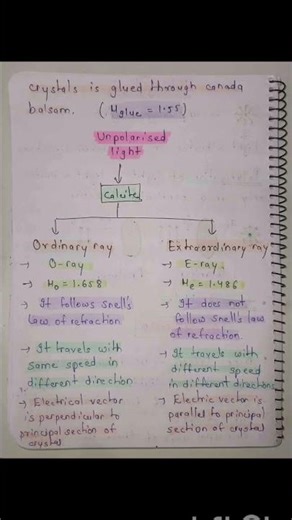 crystals is glued through canada
balsam. (μglue = 1.55)
Unpolarised
light
Calcite
Ordinary ray
→ O-ray
→ μo = 1.658
→ It follows snell's
law of refraction
→ It travels with
same speed in
different direction
→ Electrical vector
is perpendicular to
principal section of
crystal
Extraordinary ray
→ E-ray
→ μe = 1.486
→ It does not
follow Snell's law
of refraction
→ It travels with
different speed
in different directions
→ Electric vector is
parallel to principal
section of crystal